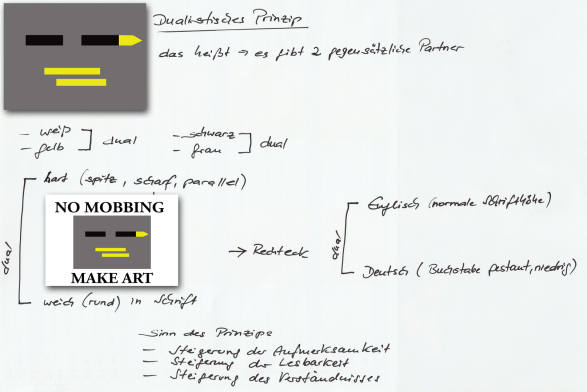 Dualistisches Prinzip
das heißt → es gibt 2 gegensätzliche Partner
– weiß
– gelb
dual
– schwarz
– grau
dual
hart (spitz, scharf, parallel)
NO MOBBING
MAKE ART
→ Rechteck
dual
weich (rund) in Schrift
Englisch (normale Schrifthöhe)
dual
Deutsch (Buchstabe gestaut, niedrig)
Sinn des Prinzips
— Steigerung der Aufmerksamkeit
— Steigerung der Lesbarkeit
— Steigerung des Verständnisses